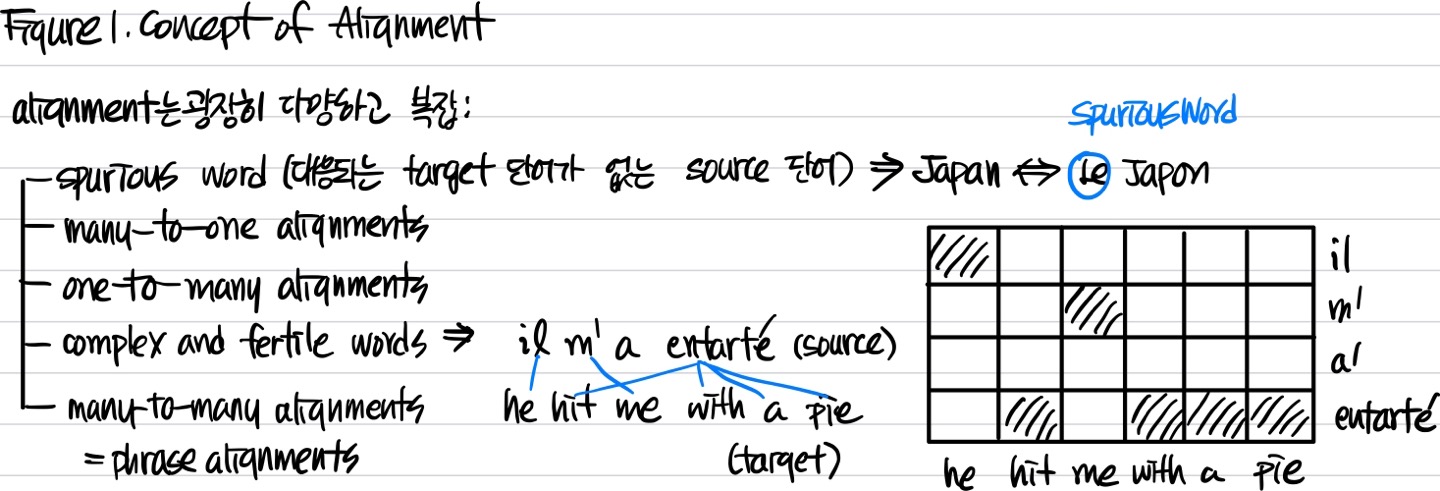 Figure 1. Concept of Alignment
alignment는 굉장히 다양하고 복잡:
spurious word
spurious word (대응되는 target 단어가 없는 source 단어) ⇒ Japan ⇔ Le Japon
many-to-one alignments
one-to-many alignments
complex and fertile words ⇒ il m' a entarté (source)
he hit me with a pie
(target)
many-to-many alignments
= phrase alignments
il
m'
a'
entarté
he hit me with a pie